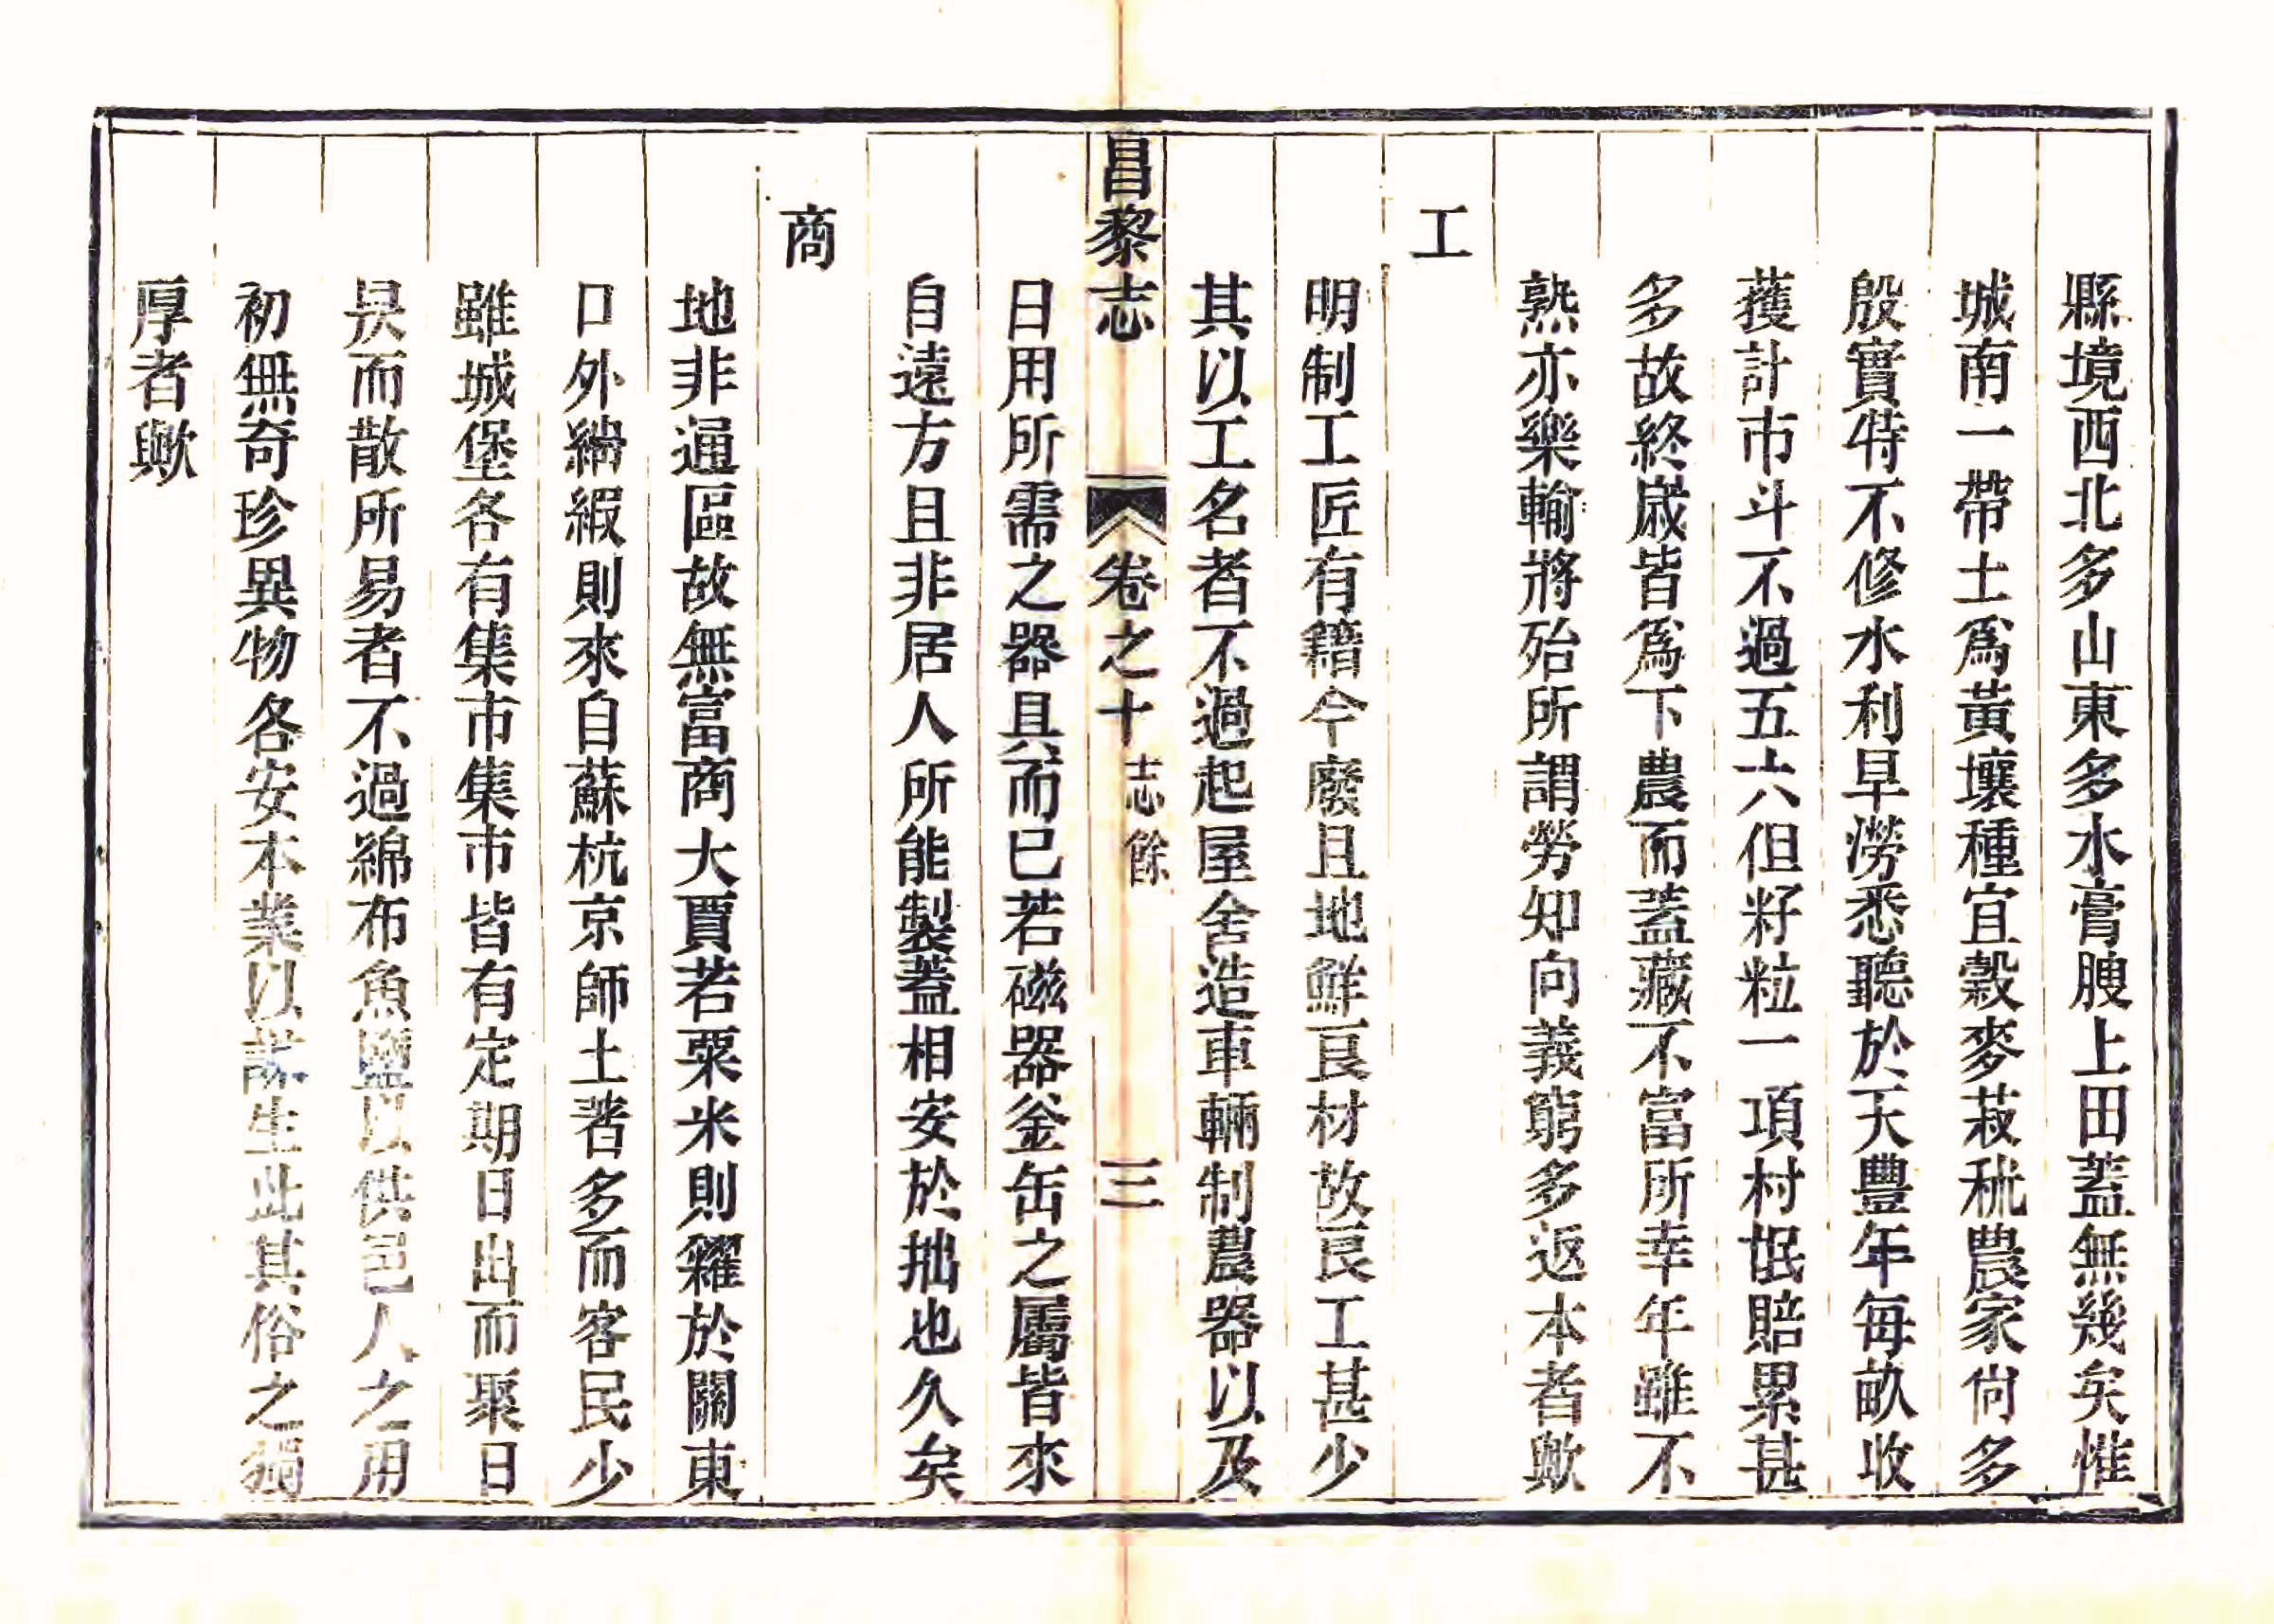 縣境西北多山東多水膏腴上田蓋無幾矣惟
城南一帶土爲黃壤種宜穀麥菽秫農家尙多
殷實特不修水利旱澇悉聽於天豐年每畝收
穫計市斗不過五六但籽粒一項村氓賠累甚
多故終歲皆爲下農而蓋藏不富所幸年雖不
熟亦樂輸將殆所謂勞知向義窮多返本者歟
工
明制工匠有籍今廢且地鮮良材故良工甚少
其以工名者不過起屋舍造車輛制農器以及
昌黎志 卷之十 志餘 三
日用所需之器具而已若磁器釜缶之屬皆來
自遠方且非居人所能製蓋相安於拙也久矣
商
地非通區故無富商大賈若粟米則糴於關東
口外紬緞則來自蘇杭京師土著多而客民少
雖城堡各有集市集市皆有定期日出而聚日
昃而散所易者不過綿布魚鹽以供邑人之用
初無奇珍異物各安本業以謀生此其俗之獨
厚者歟